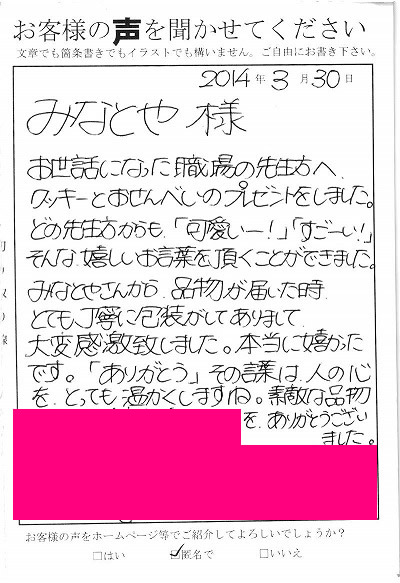 お客様の声を聞かせてください
文章でも箇条書きでもイラストでも構いません。ご自由にお書き下さい。
2014年 3月 30日
みなとや 様
お世話になった職場の先生方へ
クッキーとおせんべいのプレゼントをしました。
どの先生方からも、「可愛いー!」「すごーい!」
そんな嬉しいお言葉を頂くことができました。
みなとやさんから、品物が届いた時
とても丁寧に包装がしてありまして
大変感激致しました。本当に嬉かった
です。「ありがとう」その言葉は、人の心
を、とっても温かくしますね。素敵な品物
を、ありがとうござい
ました。
お客様の声をホームページ等でご紹介してよろしいでしょうか?
□はい ☑匿名で □いいえ